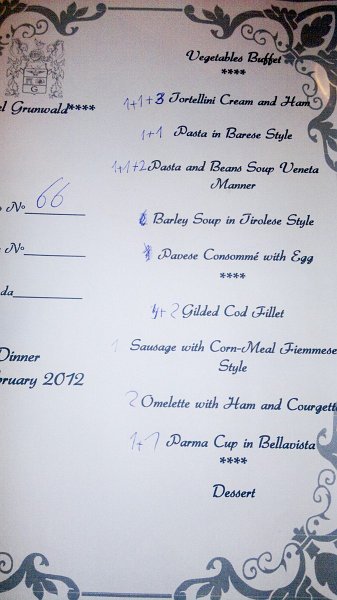 G
el Grunwald****
o Nº 66
Nº
da
Dinner
bruary 2012
Vegetables Buffet
****
1+1+3 Tortellini Cream and Ham
1+1 Pasta in Barese Style
1+1+2 Pasta and Beans Soup Veneta
Manner
Barley Soup in Tirolese Style
Pavese Consommé with Egg
****
+2 Gilded Cod Fillet
1 Sausage with Corn-Meal Fiemmese
Style
2 Omelette with Ham and Courgett
1+1 Parma Cup in Bellavista
****
Dessert